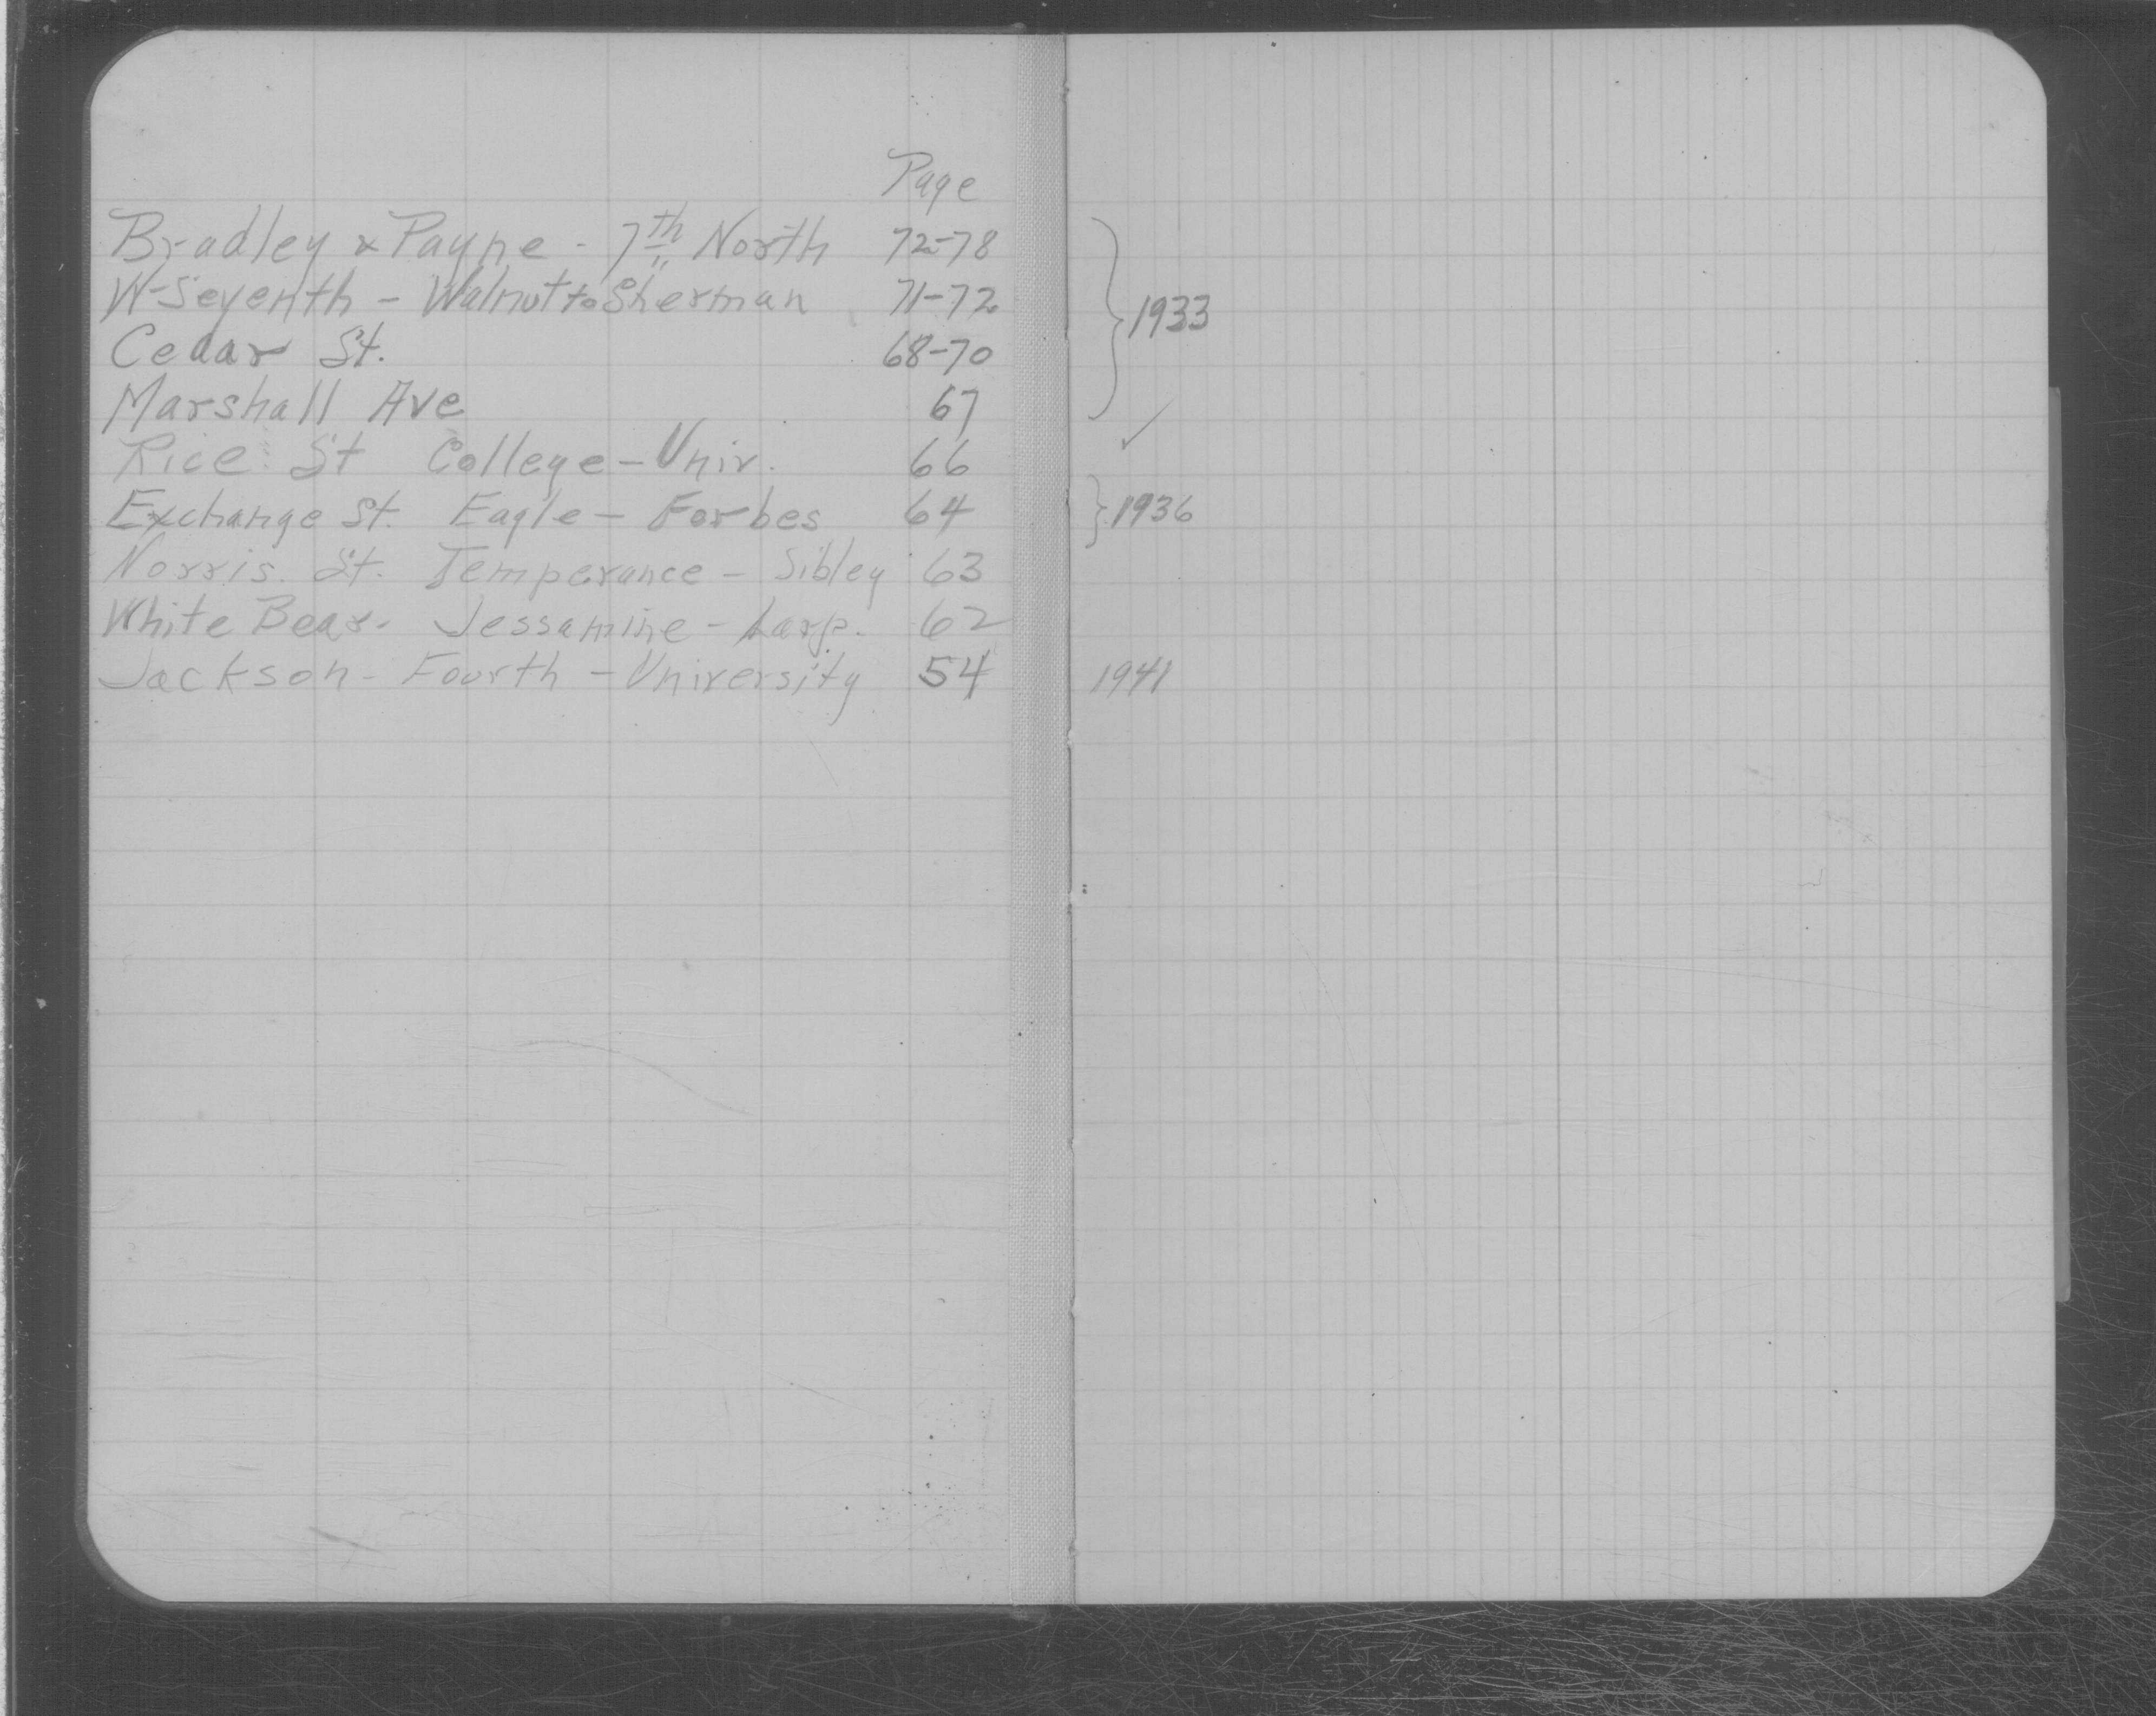 Page
Bradley & Payne - 7th North 72-78
W-Seventh - Walnut to Sherman 71-72
Cedar St. 68-70
Marshall Ave 67
Rice St College - Univ. 66
Exchange St. Eagle - Forbes 64
Norris St. Temperance - Sibley 63
White Bear - Jessamine - Larp. 62
Jackson - Fourth - University 54
} 1933
✓
} 1936
1941